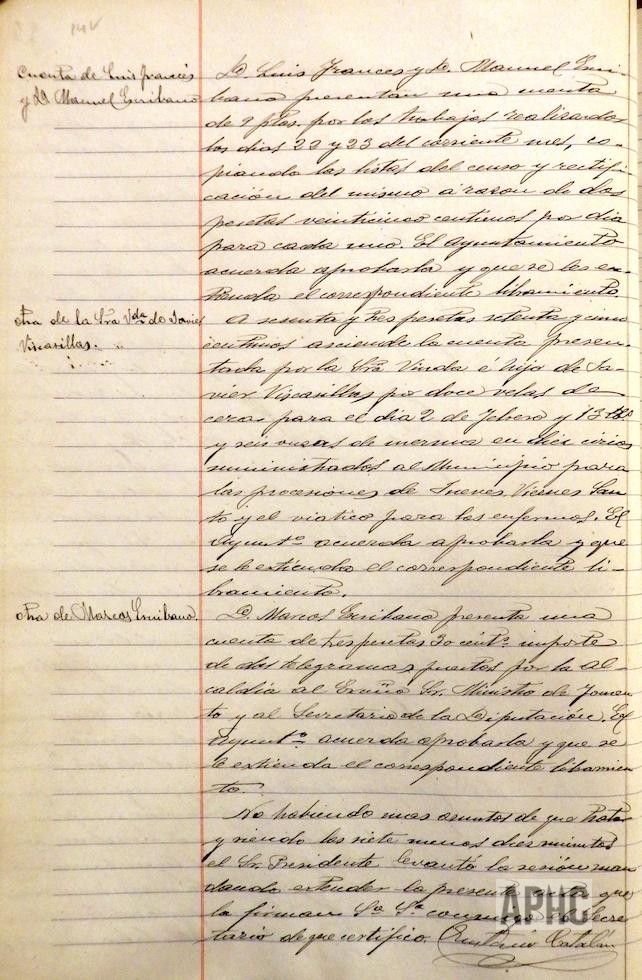 14V
Cuenta de Luis Francés
y D. Manuel Escribano
D. Luis Frances y D. Manuel Escri-
bano presentan una cuenta
de 9 ptas. por los trabajos realizados
los dias 22 y 23 del corriente mes, co-
piando las listas del censo y rectifi-
cación del mismo á razon de dos
pesetas veinticinco centimos por dia
para cada uno. El Ayuntamiento
acuerda aprobarla y que se les es-
tienda el correspondiente libramiento
otra de la Sra Vda de Javier
Viscasillas.
A sesenta y tres pesetas setenta y cinco
centimos asciende la cuenta presen-
tada por la Sra Viuda é hijo de Ja-
vier Viscasillas por doce velas de
cera para el dia 2 de Febrero y 13
y seis onzas de merma en diez cirios
suministrados al Municipio para
las procesiones de Jueves, Viernes San-
to y el viatico para los enfermos. El
Ayuntº acuerda aprobarla y que
se le extienda el correspondiente li-
bramiento.
otra de Marcos Escribano.
D. Marcos Escribano presenta una
cuenta de tres pesetas 30 centº importe
de dos telegramas puestos por la al-
caldía al Excmo Sr. Ministro de Fomen
to y al Secretario de la Diputación. El
Ayuntº acuerda aprobarla y que se
le extienda el correspondiente libramien
to.
No habiendo mas asuntos de que tratar
y siendo las siete menos diez minutos
el Sr. Presidente levantó la sesión man
dando extender la presente acta que
la firman Sª Sª conmigo el Secre
tario de que certifico. Eustasio Catalan
APHC